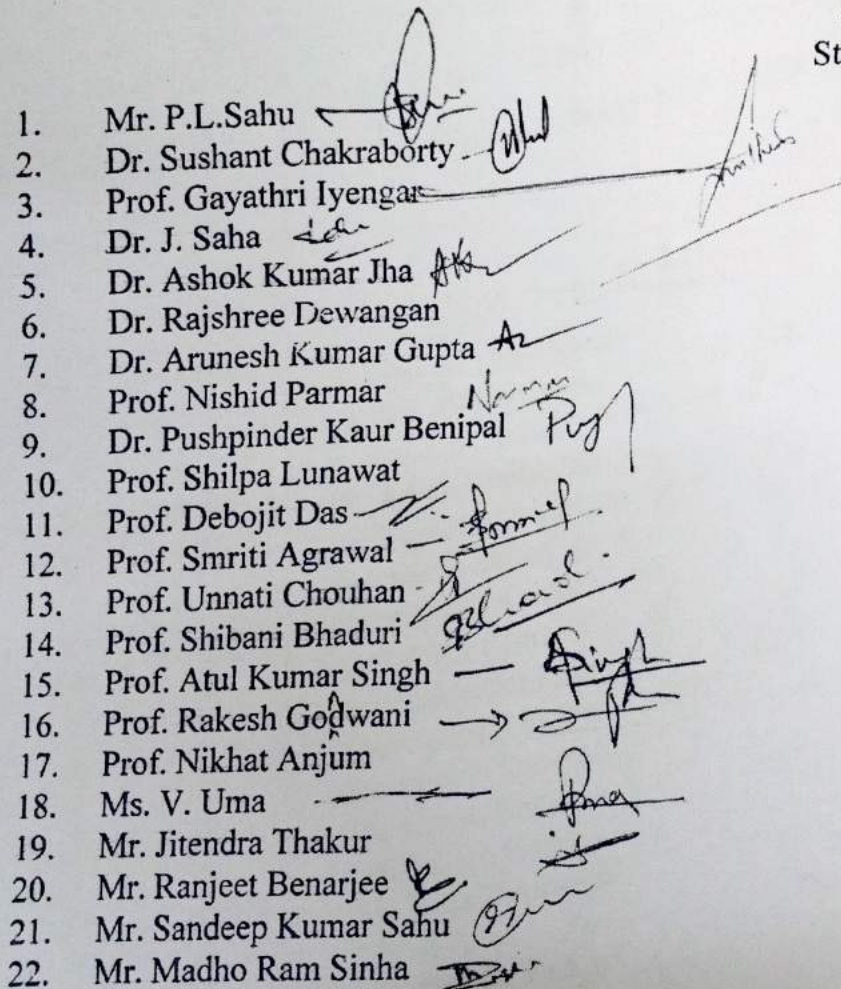 St
1. Mr. P.L.Sahu
2. Dr. Sushant Chakraborty
3. Prof. Gayathri Iyengar
4. Dr. J. Saha
5. Dr. Ashok Kumar Jha
6. Dr. Rajshree Dewangan
7. Dr. Arunesh Kumar Gupta
8. Prof. Nishid Parmar
9. Dr. Pushpinder Kaur Benipal
10. Prof. Shilpa Lunawat
11. Prof. Debojit Das
12. Prof. Smriti Agrawal
13. Prof. Unnati Chouhan
14. Prof. Shibani Bhaduri
15. Prof. Atul Kumar Singh ASingh
16. Prof. Rakesh Godwani
17. Prof. Nikhat Anjum
18. Ms. V. Uma Uma
19. Mr. Jitendra Thakur
20. Mr. Ranjeet Benarjee
21. Mr. Sandeep Kumar Sahu
22. Mr. Madho Ram Sinha